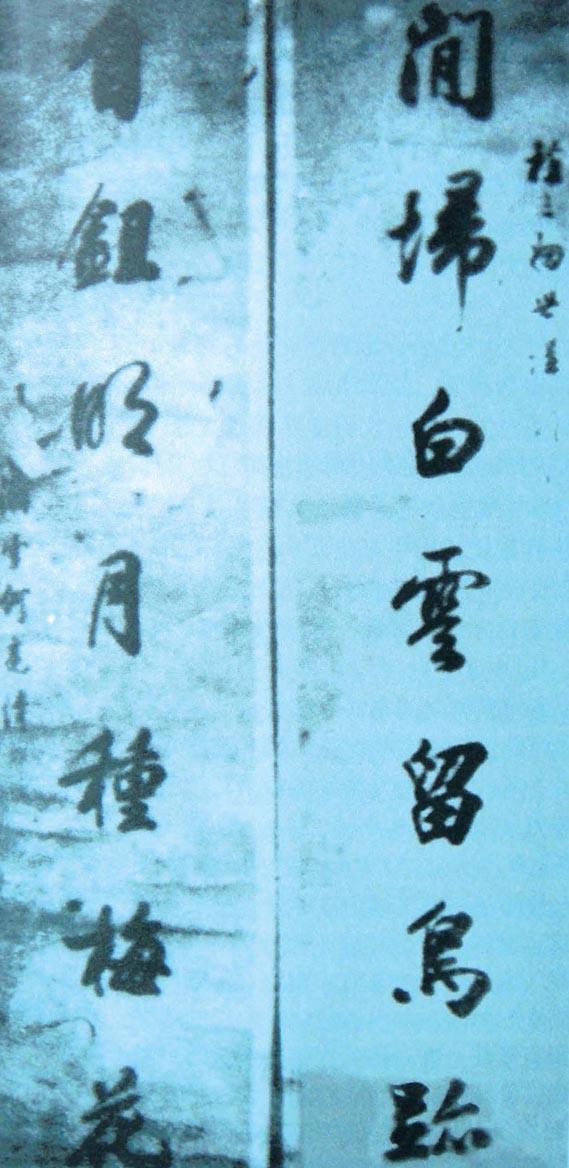 閒埽白雲留鳥跡
自鉏明月種梅花